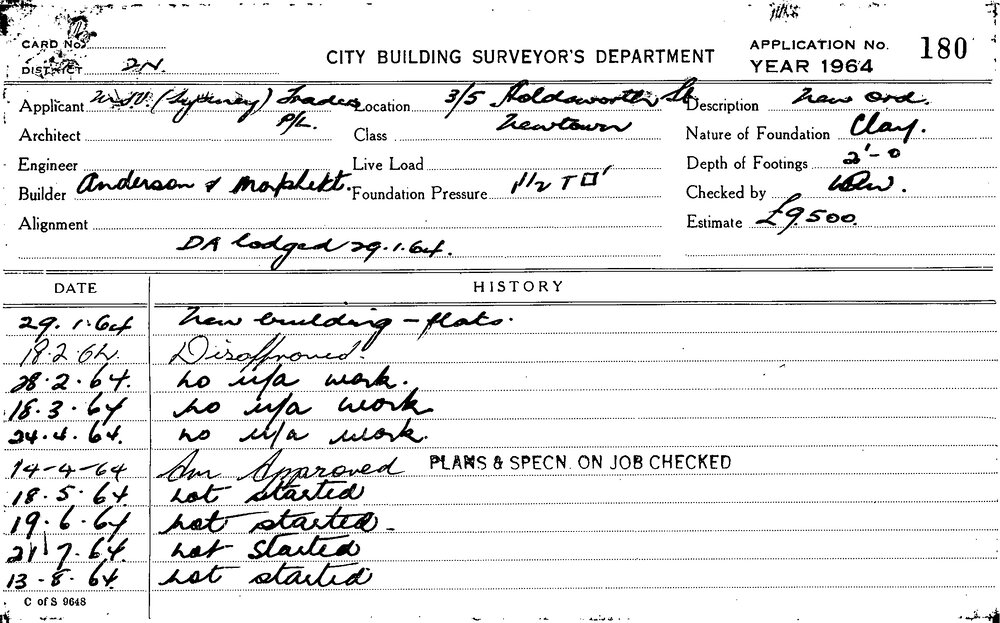 CARD No.
DISTRICT 2N.
CITY BUILDING SURVEYOR'S DEPARTMENT
APPLICATION No. 180
YEAR 1964
Applicant (Sydney) Traders P/L.
Location 3/5 Holdsworth St
Newtown
Description New ord.
Architect
Class
Nature of Foundation Clay.
Engineer
Live Load
Depth of Footings 2'-0
Builder Anderson &
Foundation Pressure 1 1/2 T □'
Checked by
Alignment
Estimate £9500.
DA lodged 29.1.64.
DATE HISTORY
29.1.64 New building - flats.
18.2.64 Disapproved.
28.2.64. no u/a work.
18.3.64 no u/a work
24.4.64. no u/a work.
14-4-64 Am Approved PLANS & SPECN. ON JOB CHECKED
18.5.64 not started
19.6.64 not started -
21.7.64. not started
13-8-64. not started
C of S 9648